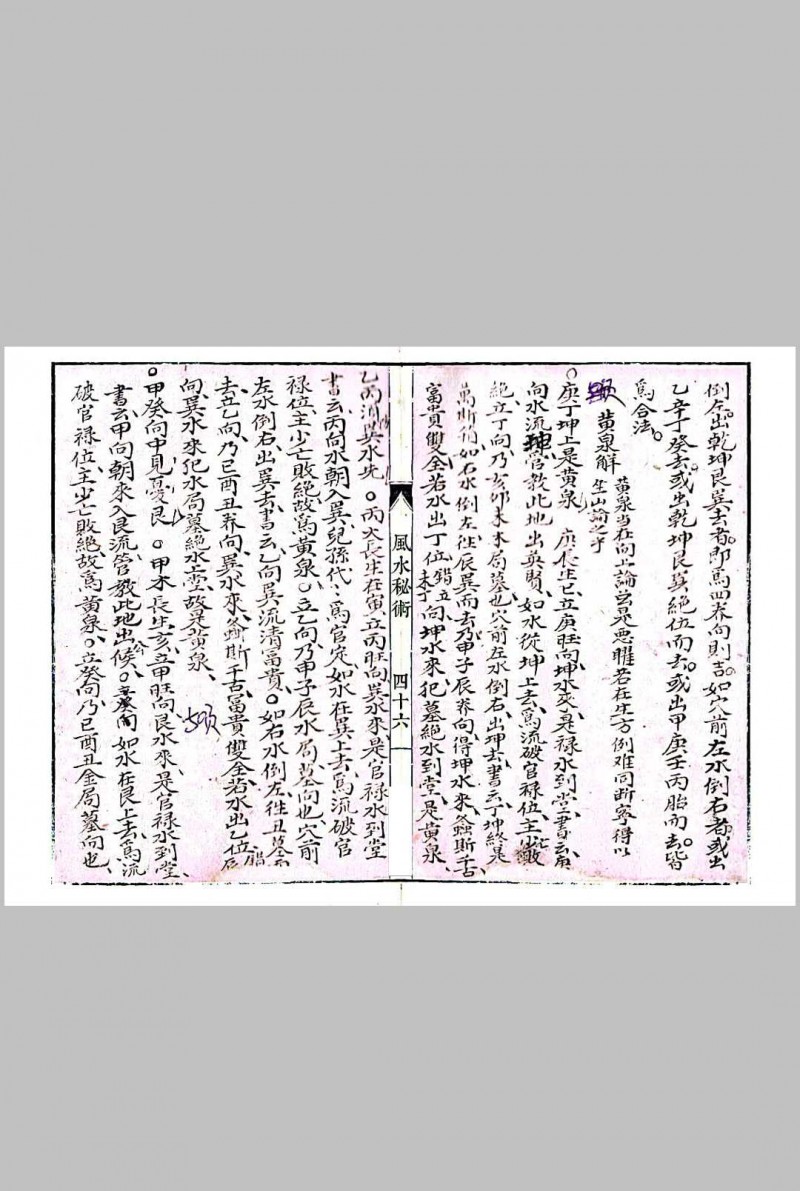 倒左。出乾坤艮巽去者。即為四养向則吉。如穴前左水倒右者、或出
乙辛丁癸去。或出乾坤艮巽絕位而去。或出甲庚壬丙胎而去。皆
為合法。
黃泉解 黃泉当在向上論
。庚丁坤上是黃泉 庚長生巳、立庚旺向、坤水來、是禄水到堂、書云庚
向水流坤、管教此地出英賢、如水從坤上去、為流破官禄位、主少敗
絕、立丁向、乃亥卯未木局墓也、穴前左水倒右、出坤去、書云丁坤終是
萬斯箱、如右水倒左、往辰巽而去、乃甲子辰养向、得坤水來、螽斯千古
富貴雙全、若水出丁位、錯立丁未向、坤水來、犯墓絕水到堂、是黃泉、
風水秘術 四十六
乙丙須巽水先 。丙火長生在寅、立丙旺向、巽水來、是官禄水到堂
書云丙向水朝入巽、兒孫代〻為官定、如水在巽上去、為流破官
禄位、主少亡敗絕、故為黃泉。立乙向、乃甲子辰水局墓向也、穴前
左水倒右、出巽去、書云乙向巽流清富貴。如右水倒左、往丑艮
去、立乙向、乃巳酉丑养向、巽水來、螽斯千古、富貴雙全、若水出乙位、錯
向、巽水來、犯水局墓絕水上堂、故是黃泉、
。甲癸向中見憂艮 。甲木長生亥、立甲旺向、艮水來、是官禄水到堂、
書云甲向朝來入艮流、管教此地出公候。如水在艮上去、為流
破官禄位、主少亡敗絕、故為黃泉。立癸向、乃巳酉丑金局墓向也、